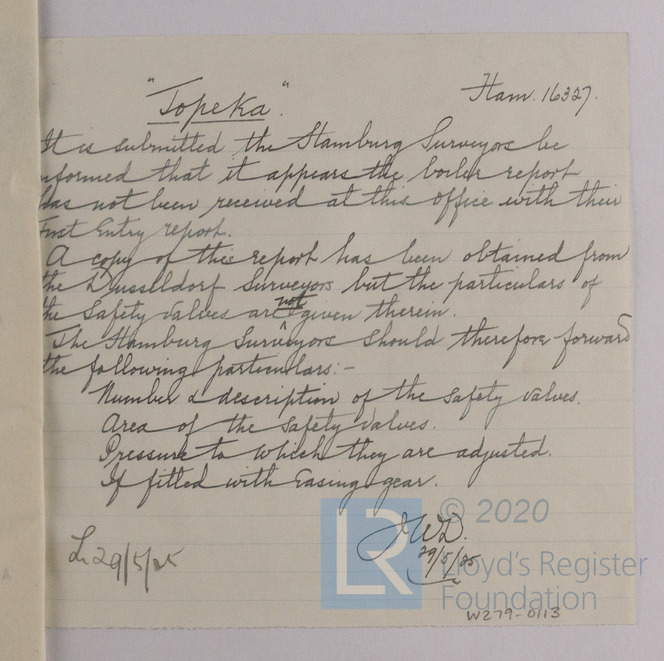 "Topeka".
Ham. 16327.
It is submitted the Hamburg Surveyors be
informed that it appears the boiler report
has not been received at this office with their
First Entry report.
A copy of this report has been obtained from
the Dusseldorf Surveyors but the particulars of
the Safety Valves are not given therein.
The Hamburg Surveyors should therefore forward
the following particulars:-
Number & description of the safety valves.
Area of the safety valves.
Pressure to which they are adjusted.
If fitted with Easing gear.
JWD.
29/5/25
L. 29/5/25
LR
© 2020
Lloyd's Register
Foundation
W279-0113